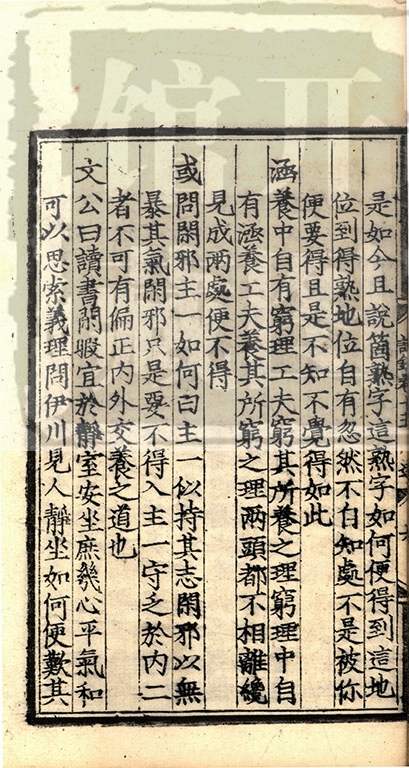 是如今且說箇熟字這熟字如何便得到這地
位到得熟地位自有忽然不自知處不是被你
便要得且是不知不覺得如此
涵養中自有窮理工夫窮其所養之理窮理中自
有涵養工夫養其所窮之理兩頭都不相離纔
見成兩處便不得
或問閑邪主一如何曰主一似持其志閑邪以無
暴其氣閑邪只是要不得入主一守之於內二
者不可有偏正內外交養之道也
文公曰讀書閑暇宜於靜室安坐庶幾心平氣和
可以思索義理問伊川見人靜坐如何便歎其